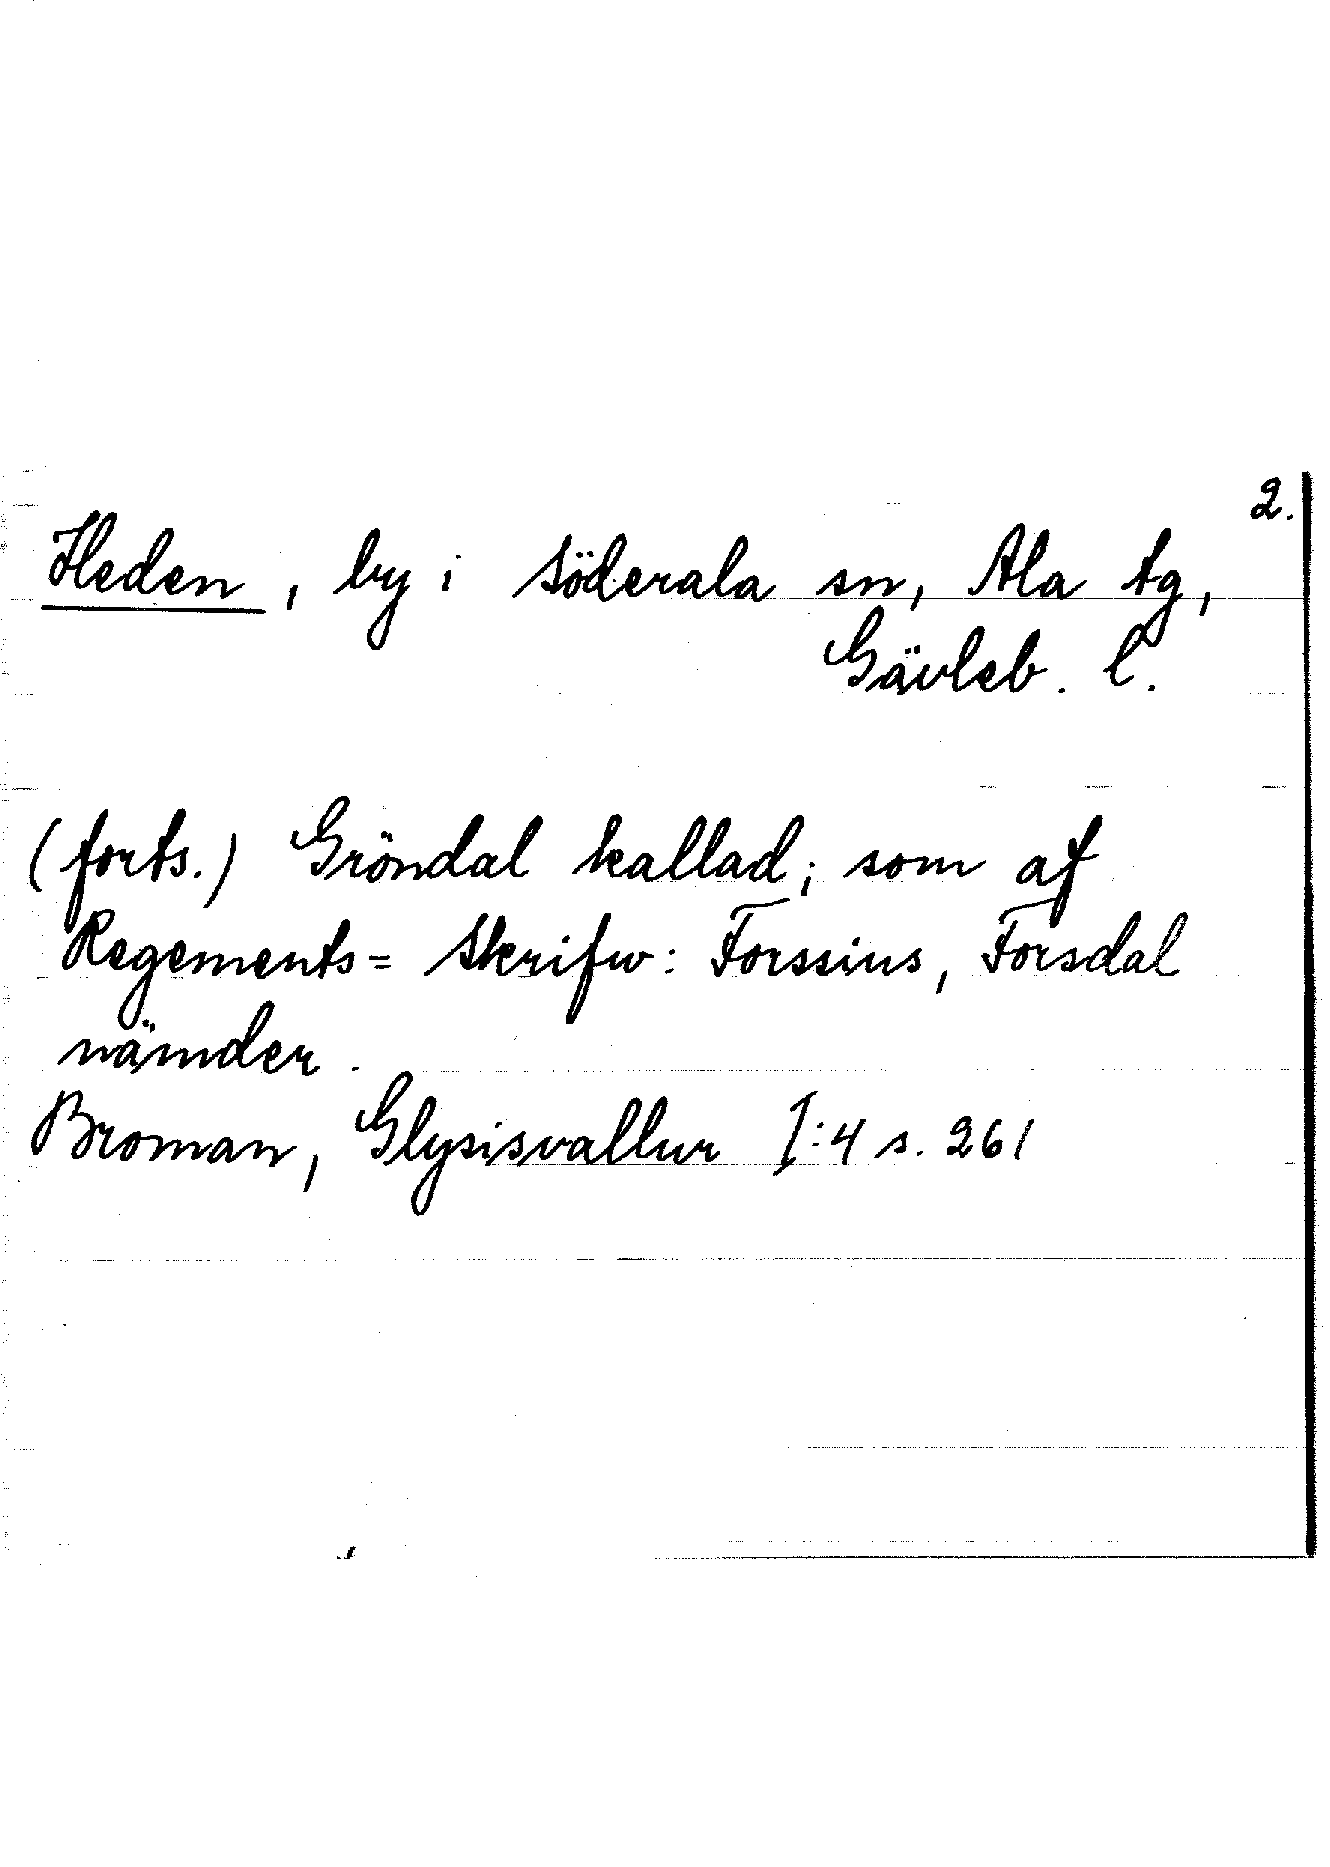 2.
Heden, by i Söderala sn, Ala tg,
Gävleb. l.
(forts.) Gröndal kallad; som af
Regements= Skrifw: Forssius, Forsdal
nämder.
Broman, Glysisvallur I:4 s. 261